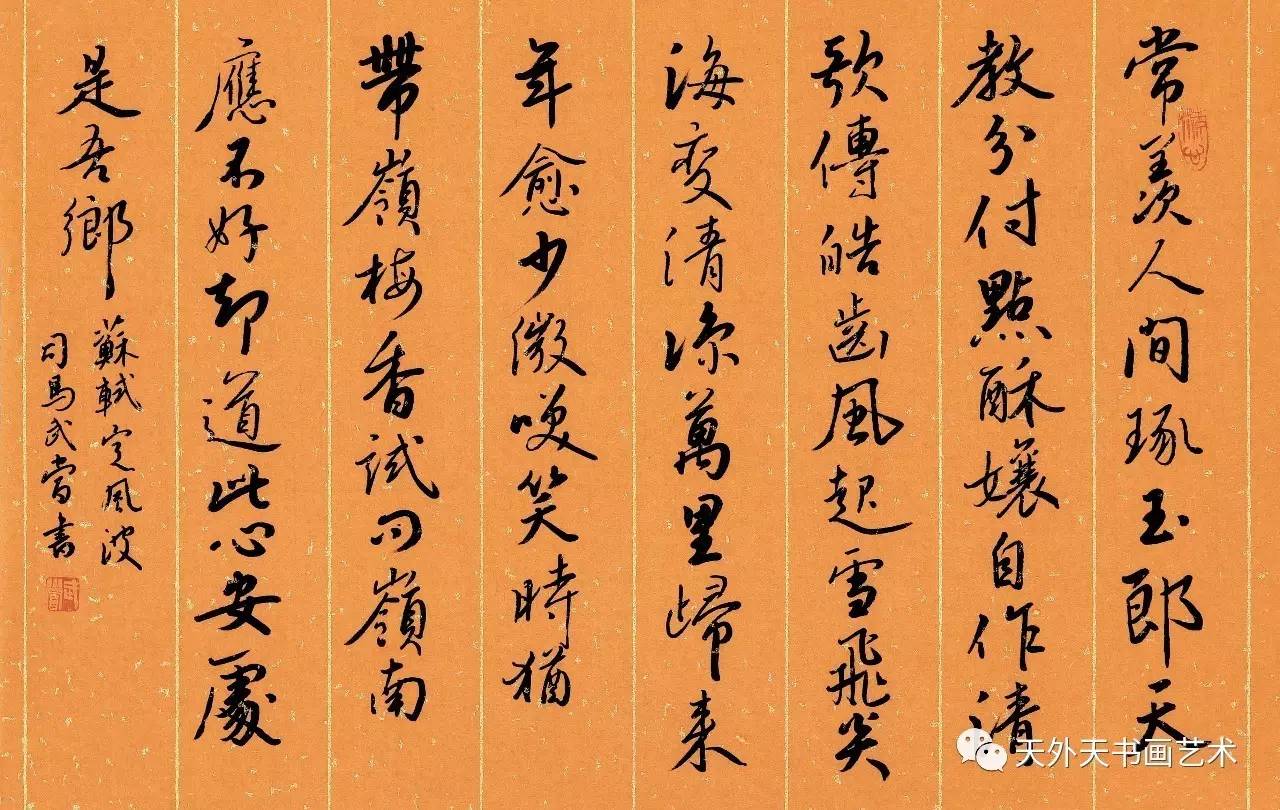 常羨人間琢玉郎天
教分付點酥孃自作清
歌傳皓齒風起雪飛炎
海变清涼萬里歸来
年愈少微咲笑時猶
帶嶺梅香試問嶺南
應不好却道此心安處
是吾鄉
蘇軾定風波
司馬武當書
天外天书画艺术